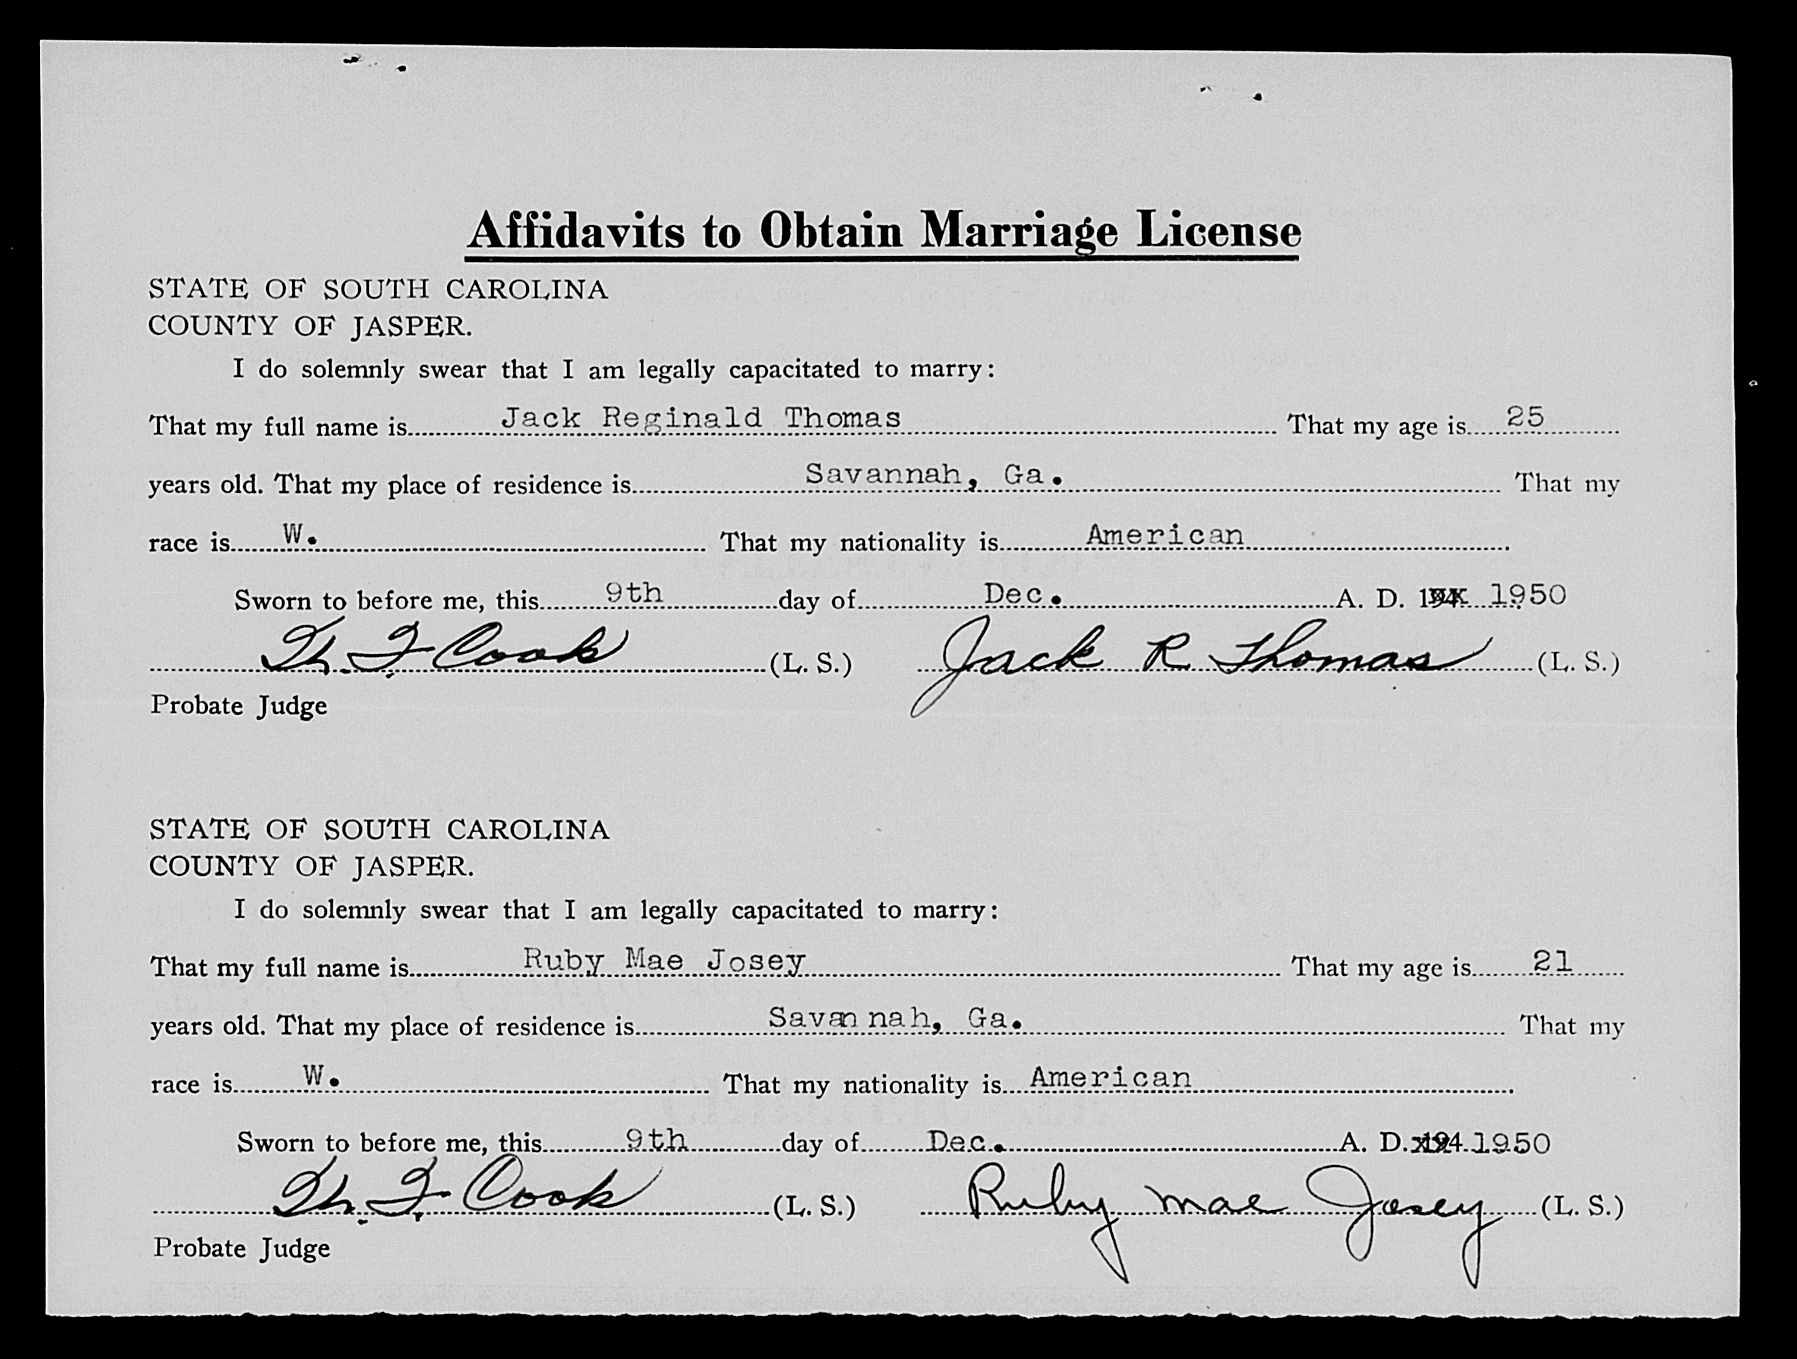 Affidavits to Obtain Marriage License
STATE OF SOUTH CAROLINA
COUNTY OF JASPER.
I do solemnly swear that I am legally capacitated to marry:
That my full name is Jack Reginald Thomas That my age is 25
years old. That my place of residence is Savannah, Ga. That my
race is W. That my nationality is American.
Sworn to before me, this 9th day of Dec. A. D. 194 1950
F Cook (L. S.) Jack R Thomas (L. S.)
Probate Judge
STATE OF SOUTH CAROLINA
COUNTY OF JASPER.
I do solemnly swear that I am legally capacitated to marry:
That my full name is Ruby Mae Josey That my age is 21
years old. That my place of residence is Savannah, Ga. That my
race is W. That my nationality is American.
Sworn to before me, this 9th day of Dec. A. D. 194 1950
F Cook (L. S.) Ruby Mae Josey (L. S.)
Probate Judge